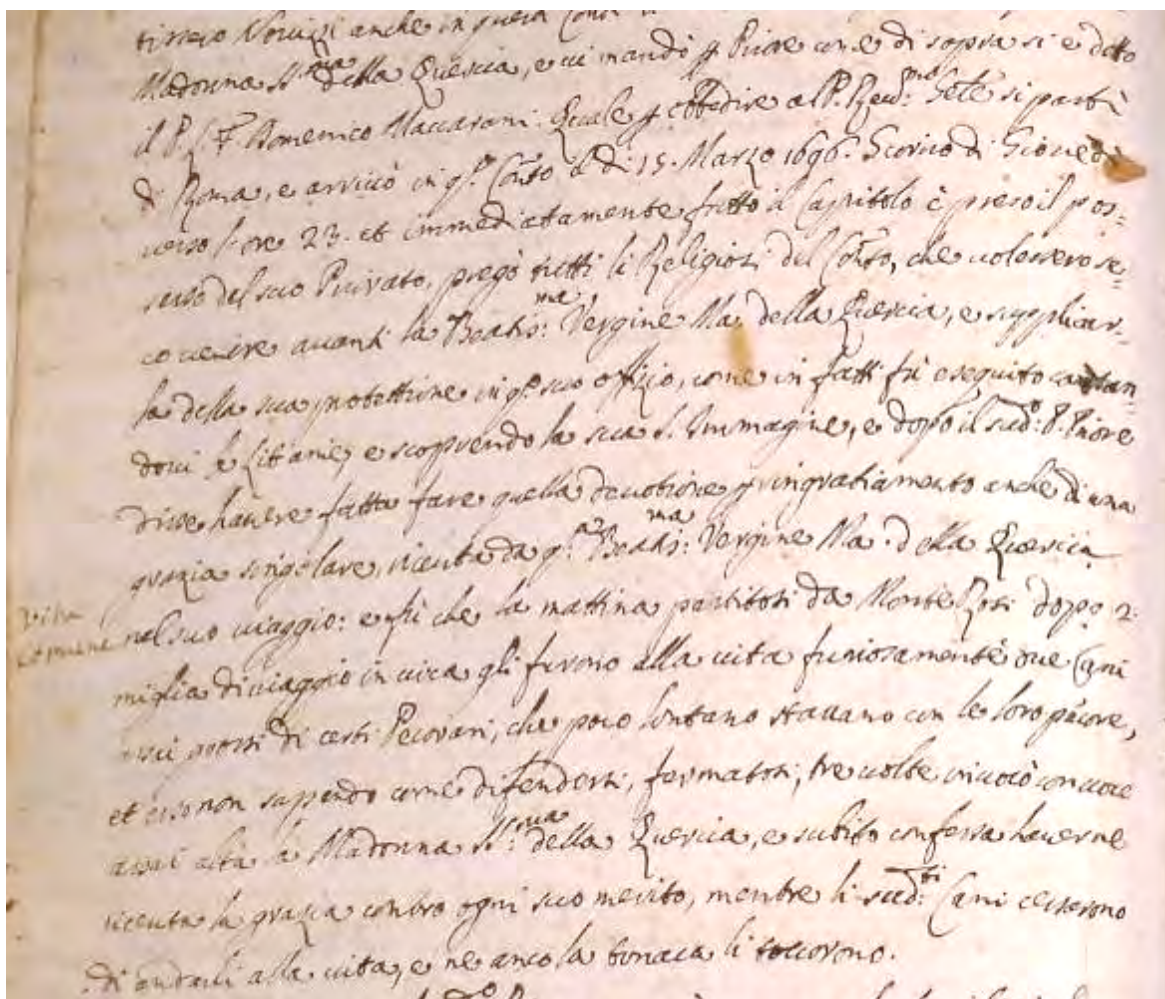 tissero Novizi anche in questa
Madonna SS.ma della Quercia, e ci mandò p Priore come di sopra si è detto
il P. L. F. Domenico Maccarani. Quale p obbedire al P. Rev.mo Sete si partì
di Roma, e arrivò in q.o Conto li di 15. Marzo 1696. Giovedì
verso l'ore 23. et immediatamente fatto il Capitolo è preso il pos=
sesso del suo Priorato, pregò tutti li Religiosi del Conto, che volessero se=
co venire avanti la Beatis:ma Vergine Ma. della Quercia, e supplicar=
la della sua protettione in q.o suo offizio, come in fatti fù eseguito cantan
dovi le litanie, e scoprendo la sua S. Immagine, e dopò il sud:o P. Priore
disse havere fatta fare quella devotione p ringratiamento anche di una
grazia singolare, ricevuta da q.a Beatis:ma Vergine Ma. della Quercia
nel suo viaggio: e fù che la mattina partitosi da Monte Rosi dopo 2.
miglia di viaggio in circa gli furono alla vita furiosamente due Cani
assai grossi di certi Pecorari, che poco lontano stavano con le loro pecore,
et esso non sapendo come difendersi, fermatosi, tre volte invocò con voce
assai alta la Madonna SS:ma della Quercia, e subito confessa haverne
ricevuta la grazia contro ogni suo merito, mentre li sud:ti Cani cessorono
di andarli alla vita, e ne anco la tonaca li toccorono.